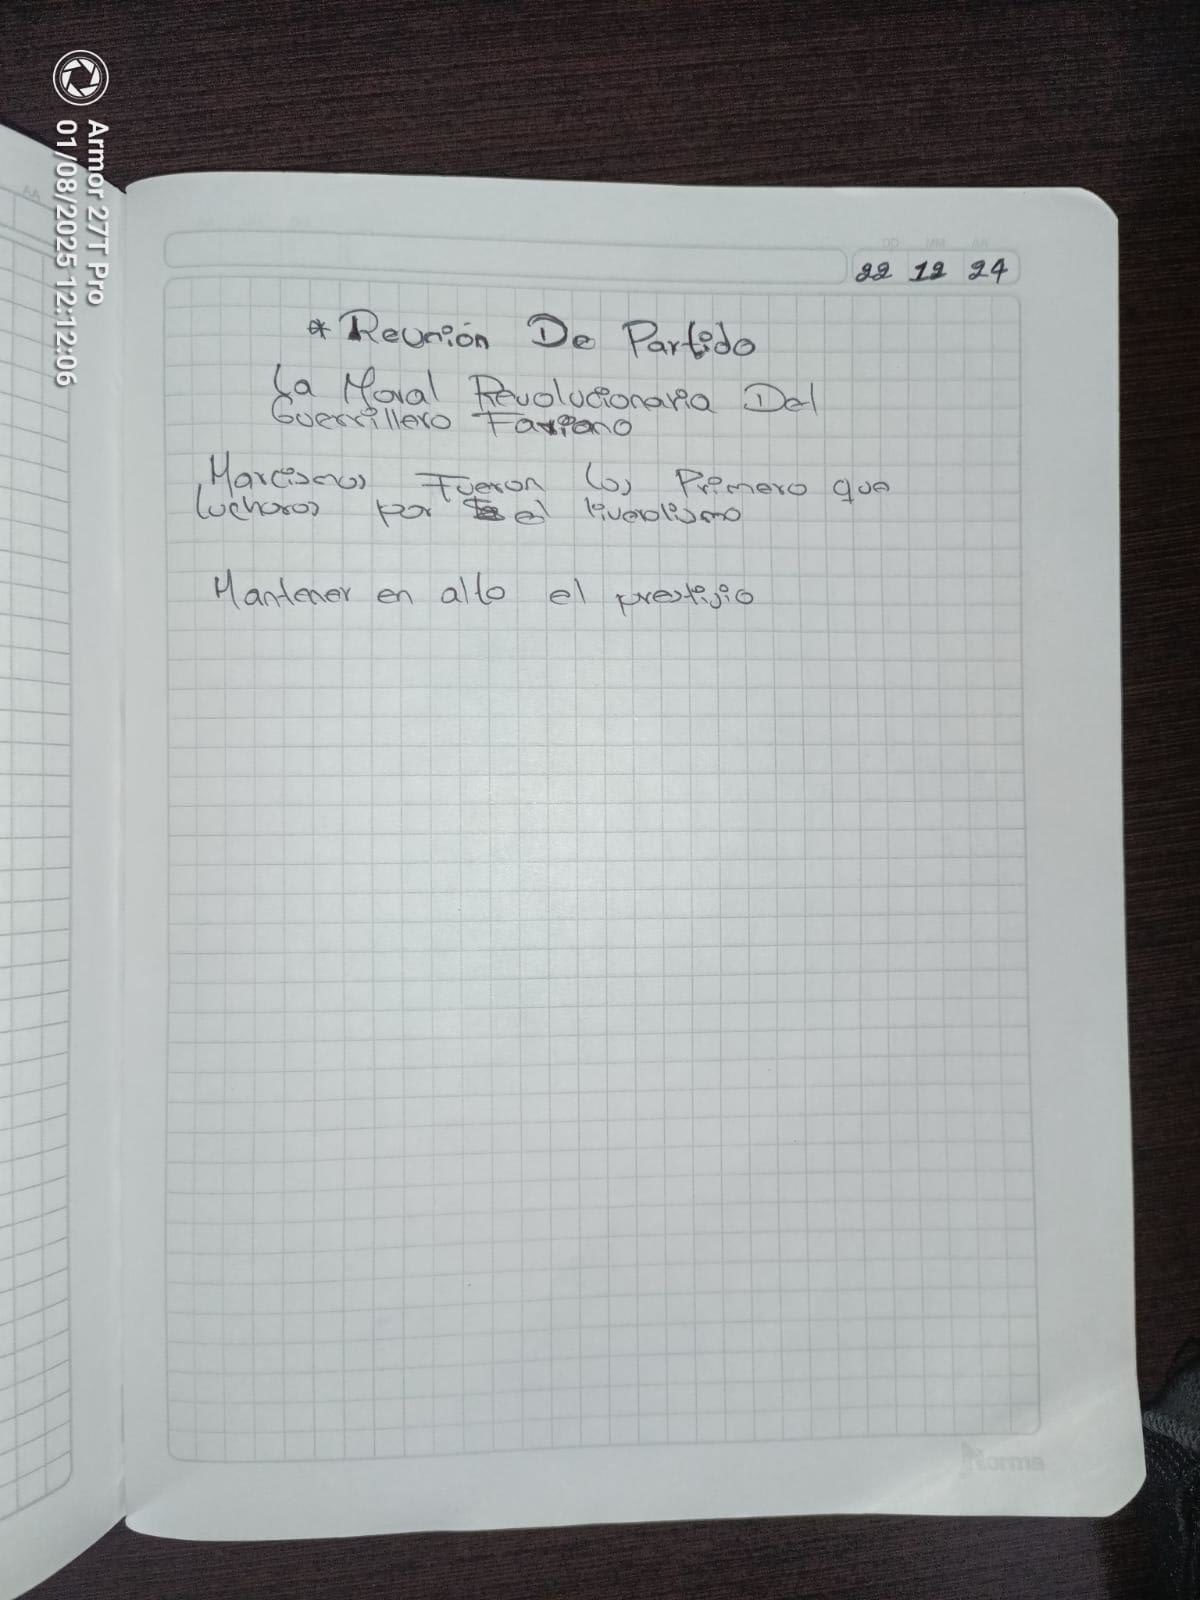 Armor 27T Pro
01/08/2025 12:12:06
AA
DD MM AA
22 12 24
* Reunión De Partido
La Moral Revolucionaria Del
Guerrillero Fariano
Marcismos Fueron los Primero que
luchoros por el liverlismo
Mantener en alto el prestijio
Norma